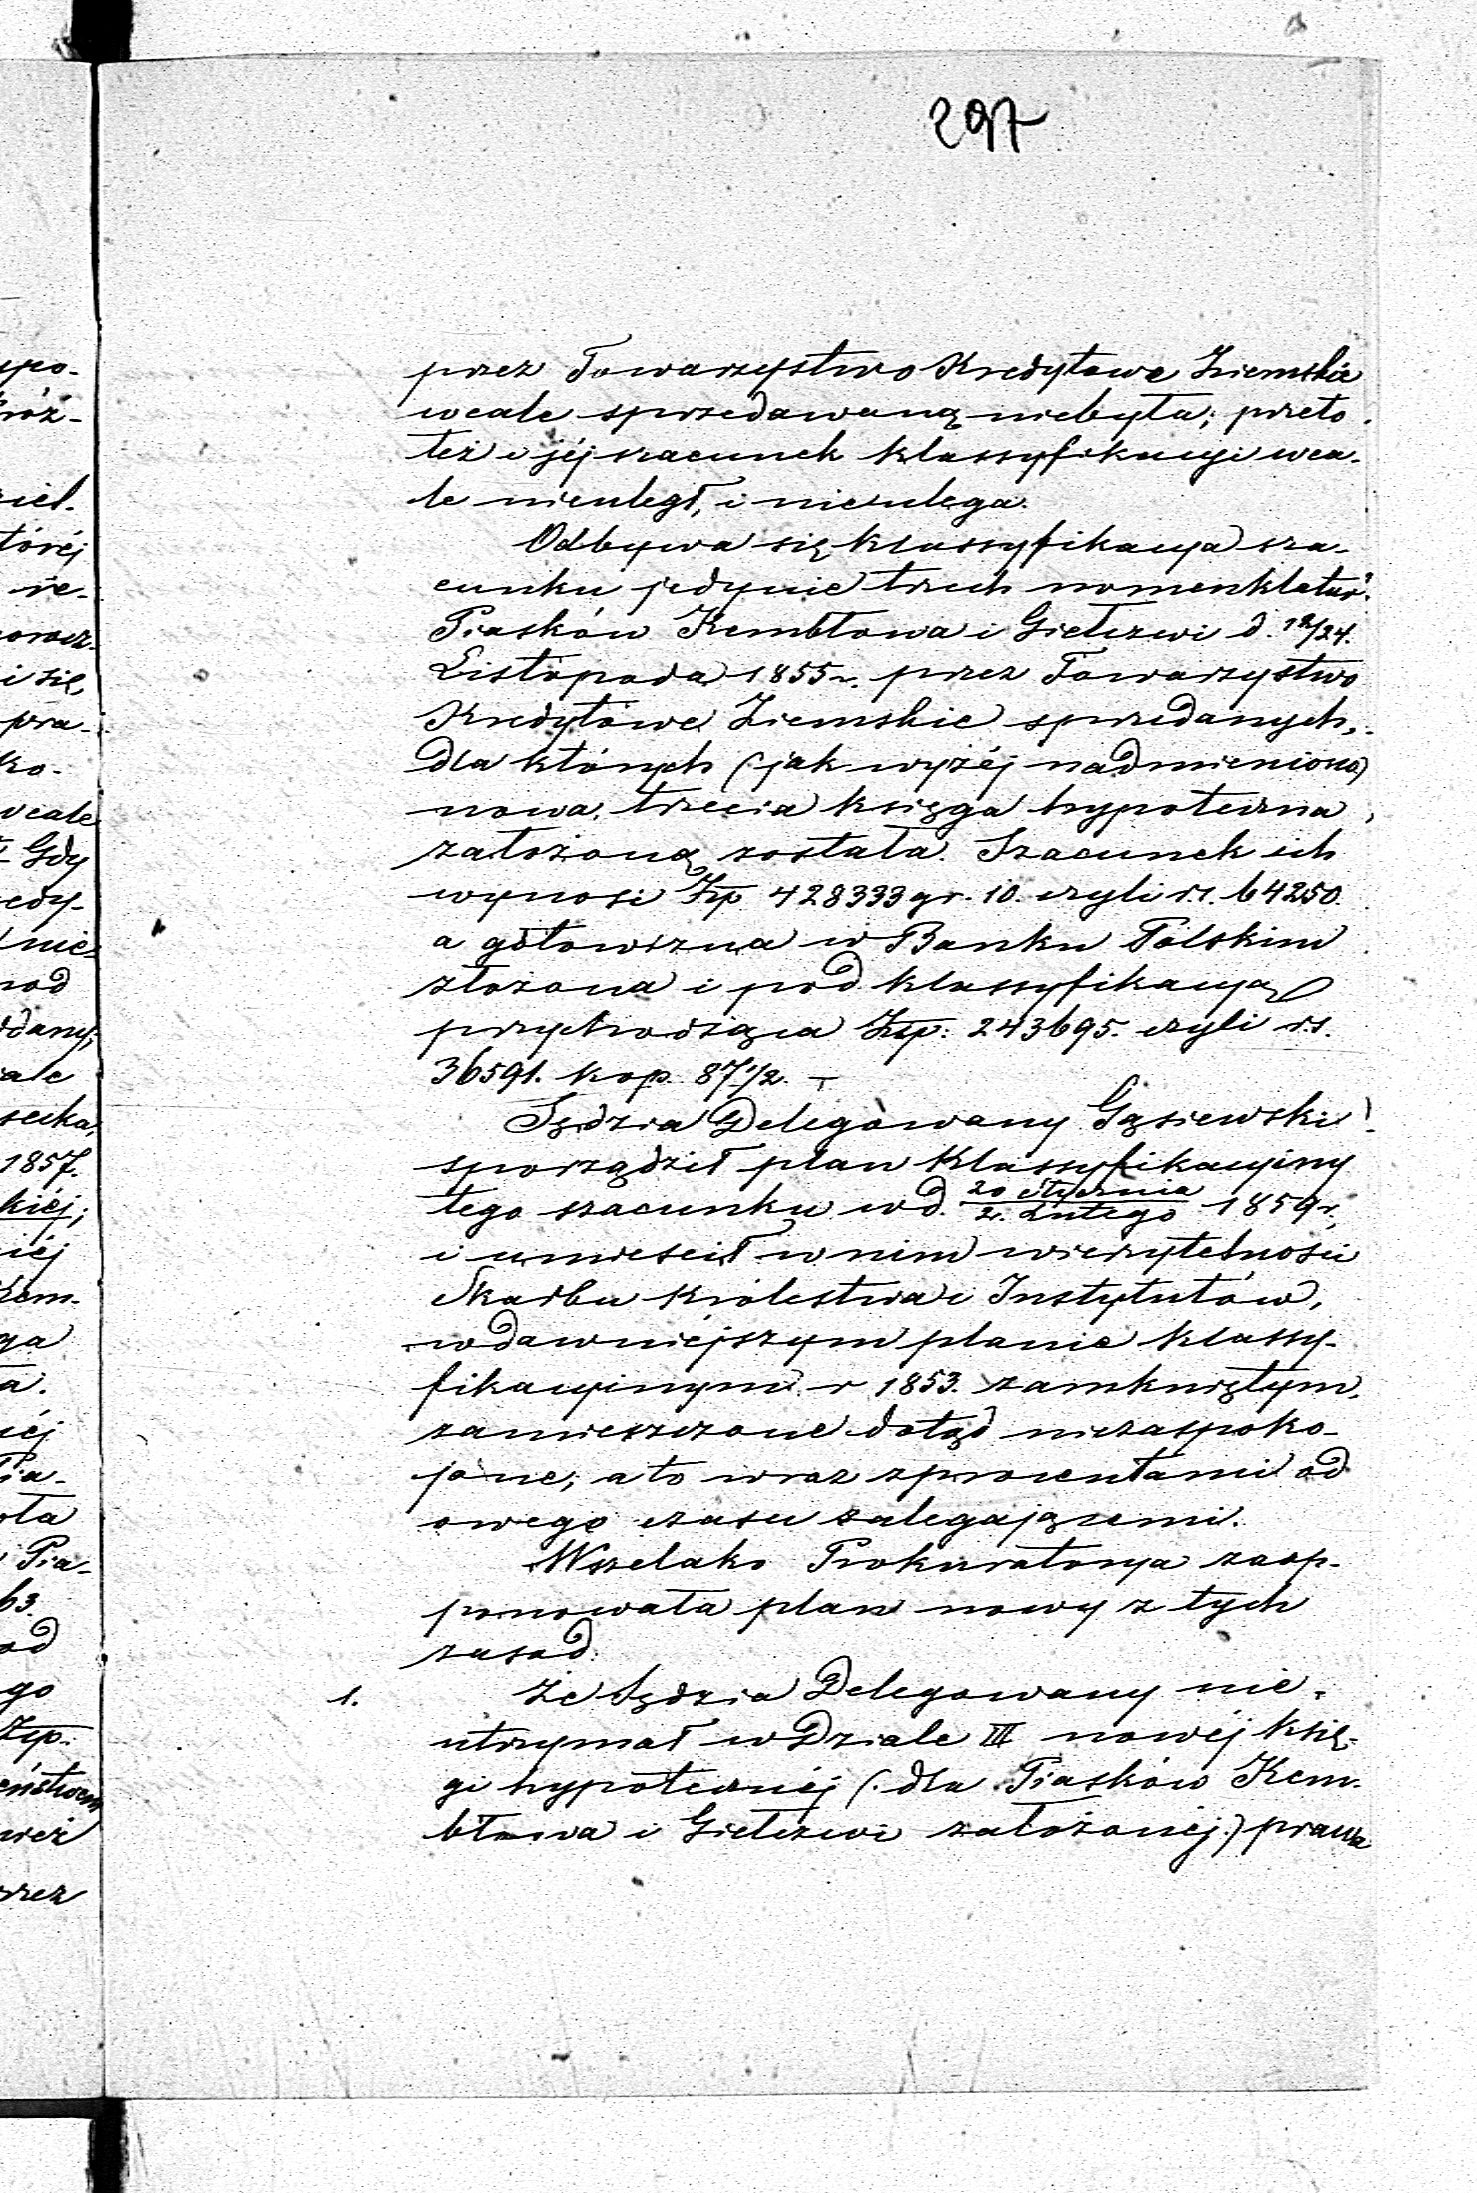 297
przez Towarzystwo Kredytowe Ziemskie
wcale sprzedawaną niebyła; przeto
też i jéj szacunek klassyfikacyi wca-
le nieuległ, i nieulega.
Odbywa się klassyfikacya sza-
cunku jedynie trzech nomenklatur.
Piasków Kembłowa i Giełczwi d. 12/24.
Listopada 1855 r. przez Towarzystwo
Kredytowe Ziemskie sprzedanych,
dla których (jak wyżéj nadmieniono)
nowa, trzecia księga hypoteczna
założoną została. Szacunek ich
wynosi Złp 428333 gr. 10. czyli r.s. 64250.
a gotowizna w Banku Polskim
złożona i pod klassyfikacyą
przychodząca Złp: 243695. czyli r.s.
36591. kop. 87 1/2. –
Sędzia Delegowany Gąsiewski
sporządził plan klassyfikacyiny
tego szacunku w d. 20 Stycznia / 2. Lutego 1859 r.,
i umieścił w nim wierzytelności
Skarbu Królestwa i Instytutów,
w dawniejszym planie klassy-
fikacyinym r 1853. zamkniętym,
zamieszczone dotąd niezaspoko-
jone; a to wraz z procentami od
owego czasu zalegającemi.
Wszelako Prokuratorya zaop-
ponowała plan nowy z tych
zasad:
1. że Sędzia Delegowany nie
utrzymał w Dziale III nowéj księ-
gi hypotecznéj (: dla Piasków Kem-
błowa i Giełczwi założonéj:) prawa